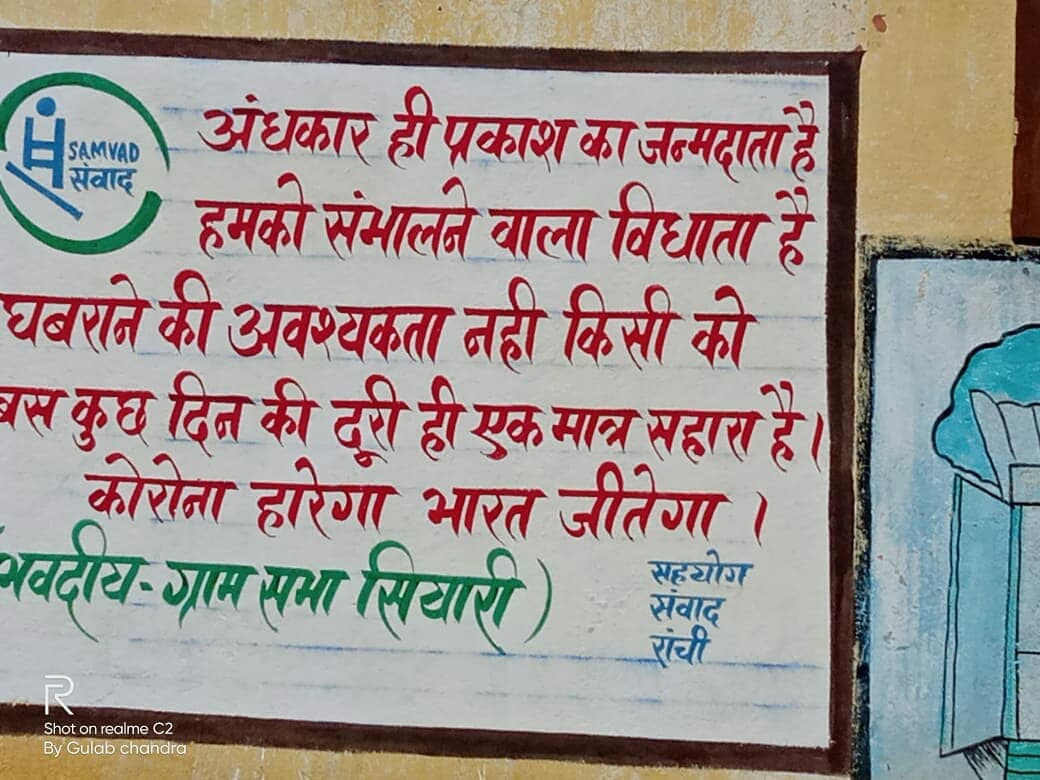 SAMVAD
संवाद
अंधकार ही प्रकाश का जन्मदाता है
हमको संभालने वाला विधाता है
घबराने की अवश्यकता नही किसी को
बस कुछ दिन की दूरी ही एक मात्र सहारा है।
कोरोना हारेगा भारत जीतेगा ।
(भवदीय - ग्राम सभा सियारी)
सहयोग
संवाद
रांची
Shot on realme C2
By Gulab chandra